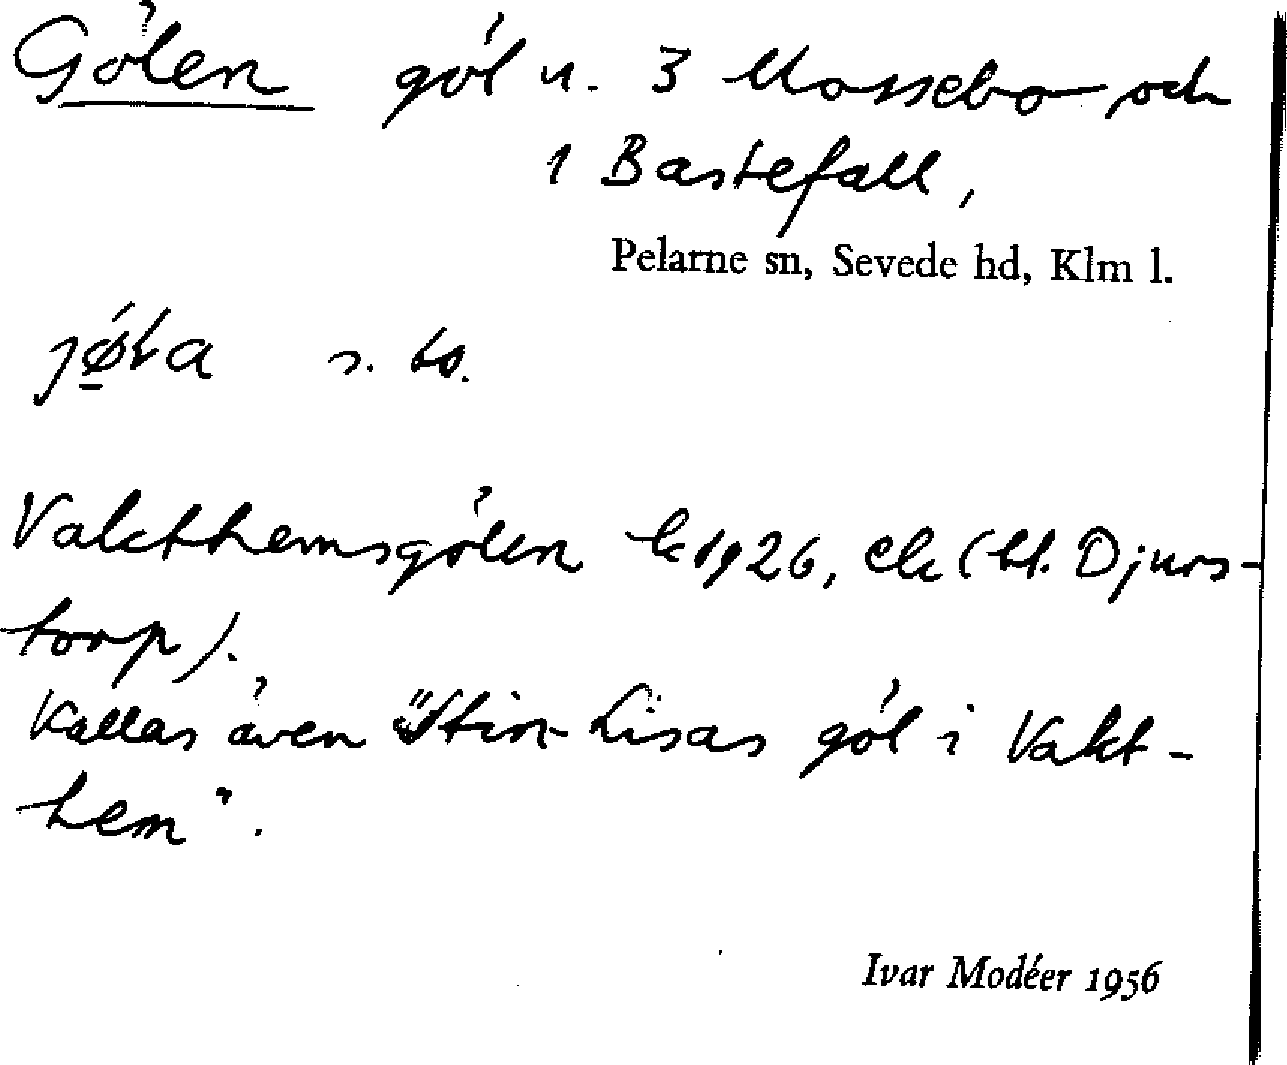 Gölen göl u. 3 Mossebo och
1 Bastefall,
Pelarne sn, Sevede hd, Klm l.
jǿ̱ta s. to.
Vakthemsgölen k 1926, ek (bl. Djurs-
torp).
Kallas även "Stin-Lisas göl i Vakt-
hem".
Ivar Modéer 1956